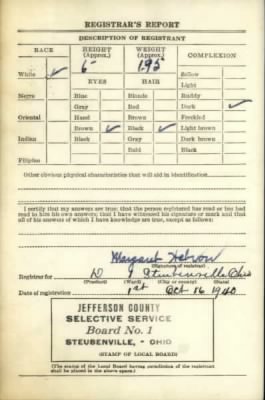 REGISTRAR'S REPORT
DESCRIPTION OF REGISTRANT
RACE HEIGHT (Approx.) WEIGHT (Approx.) COMPLEXION
White ✓ 6 195 Sallow
Light
EYES HAIR
Negro Blue Blonde Ruddy
Gray Red Dark ✓
Oriental Hazel Freckled
Brown ✓ Black ✓ Light brown
Indian Black Gray Dark brown
Bald Black
Filipino
Other obvious physical characteristics that will aid in identification
I certify that my answers are true; that the person registered has read or has had
read to him his own answers; that I have witnessed his signature or mark and that
all of his answers of which I have knowledge are true, except as follows:
Margaret
(Signature of registrar)
Registrar for D 1 Steubenville Ohio
(Precinct) (Ward) (City or county) (State)
Date of registration 1st Oct 16 1940
JEFFERSON COUNTY
SELECTIVE SERVICE
Board No. 1
STEUBENVILLE, - OHIO
(STAMP OF LOCAL BOARD)
(The stamp of the Local Board having jurisdiction of the registrant
shall be placed in the above space.)